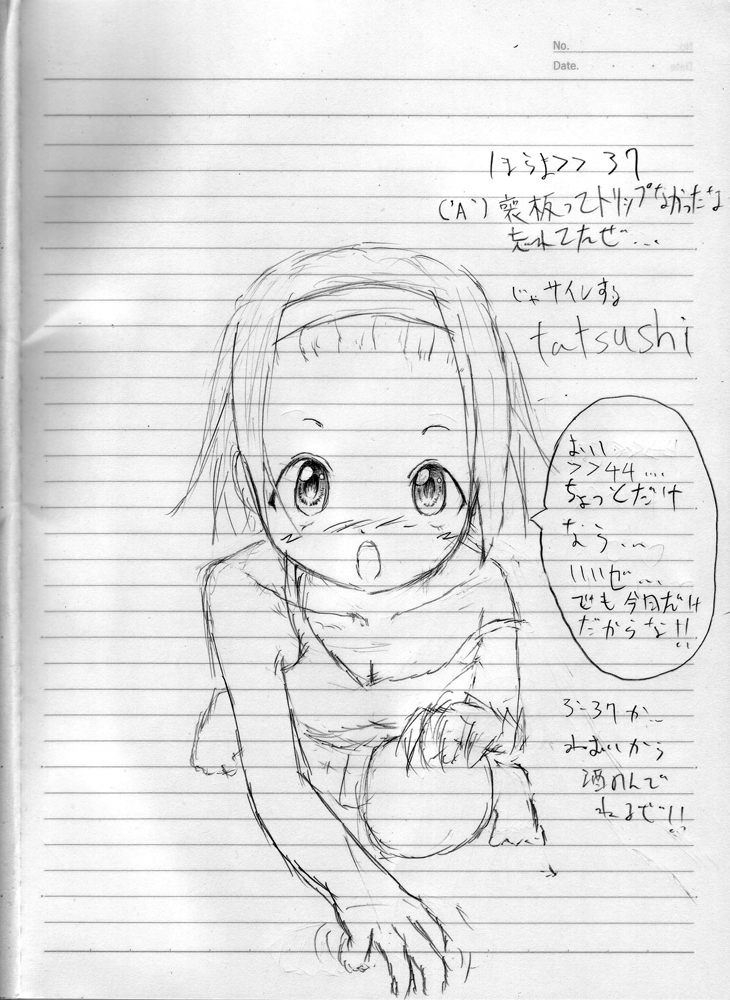 No.
Date.
ほらよ>>37
('A`)裏板ってトリップなかったな
忘れてたぜ...
じゃサイレする
tatsushi
おい
>>44....
ちょっとだけ
なら...
いいぜ...
でも今日だけ
だからな!!
3-37か...
ねむいから
酒のんで
ねるぜ!!